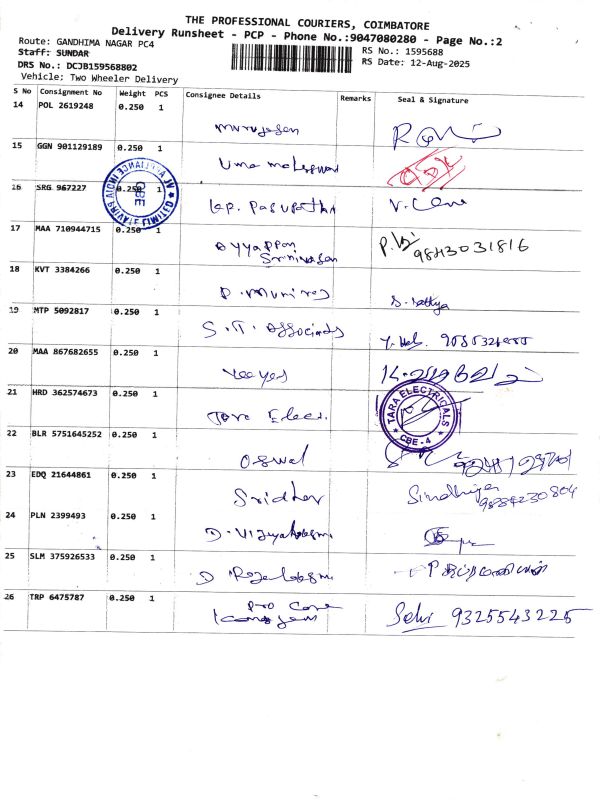 THE PROFESSIONAL COURIERS, COIMBATORE
Delivery Runsheet - PCP - Phone No.:9047080280 - Page No.:2
Route: GANDHIMA NAGAR PC4
RS No.: 1595688
Staff: SUNDAR
RS Date: 12-Aug-2025
DRS No.: DCJB159568802
Vehicle: Two Wheeler Delivery
S No Consignment No Weight PCS Consignee Details Remarks Seal & Signature
14 POL 2619248 0.250 1
Murugesan
15 GGN 901129189 0.250 1
Uma maheswari
16 SRG 967227 0.250 1
V.
17 MAA 710944715 0.250 1
Ayyappan
Srinivasan
9843031816
18 KVT 3384266 0.250 1
D. Muniraj
S. Sathya
19 MTP 5092817 0.250 1
S.T. Associads
20 MAA 867682655 0.250 1
21 HRD 362574673 0.250 1
Tara Elec.
TARA ELECTRICALS
CBE - 4
22 BLR 5751645252 0.250 1
Oswal
23 EDQ 21644861 0.250 1
Sridhar
Sindhiya
9884230804
24 PLN 2399493 0.250 1
D. Vijyalaksmi
25 SLM 375926533 0.250 1
D Rajalaksmi
26 TRP 6475787 0.250 1
Pro Care
Selvi 9325543225